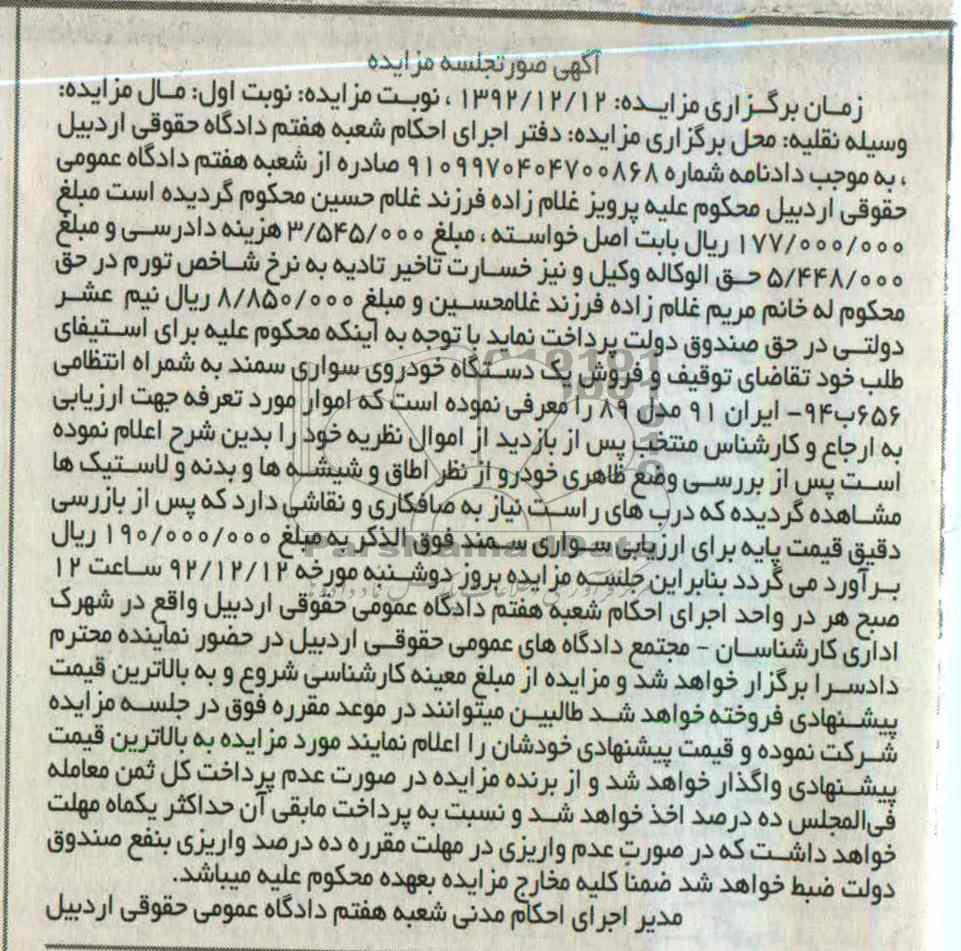 آگهی صورتجلسه مزایده
زمان برگزاری مزایده: ۱۳۹۲/۱۲/۱۲ ، نوبت مزایده: نوبت اول: مال مزایده:
وسیله نقلیه: محل برگزاری مزایده: دفتر اجرای احکام شعبه هفتم دادگاه حقوقی اردبیل
، به موجب دادنامه شماره ۹۱۰۹۹۷۰۴۰۴۷۰۰۸۶۸ صادره از شعبه هفتم دادگاه عمومی
حقوقی اردبیل محکوم علیه پرویز غلام زاده فرزند غلام حسین محکوم گردیده است مبلغ
۱۷۷/۰۰۰/۰۰۰ ریال بابت اصل خواسته ، مبلغ ۳/۵۴۵/۰۰۰ هزینه دادرسی و مبلغ
۵/۴۴۸/۰۰۰ حق الوکاله وکیل و نیز خسارت تاخیر تادیه به نرخ شاخص تورم در حق
محکوم له خانم مریم غلام زاده فرزند غلامحسین و مبلغ ۸/۸۵۰/۰۰۰ ریال نیم عشر
دولتی در حق صندوق دولت پرداخت نماید با توجه به اینکه محکوم علیه برای استیفای
طلب خود تقاضای توقیف و فروش یک دستگاه خودروی سواری سمند به شمراه انتظامی
۶۵۶ب۹۴- ایران ۹۱ مدل ۸۹ را معرفی نموده است که اموار مورد تعرفه جهت ارزیابی
به ارجاع و کارشناس منتخب پس از بازدید از اموال نظریه خود را بدین شرح اعلام نموده
است پس از بررسی وضع ظاهری خودرو از نظر اطاق و شیشه ها و بدنه و لاستیک ها
مشاهده گردیده که درب های راست نیاز به صافکاری و نقاشی دارد که پس از بازرسی
دقیق قیمت پایه برای ارزیابی سواری سمند فوق الذکر به مبلغ ۱۹۰/۰۰۰/۰۰۰ ریال
برآورد می گردد بنابراین جلسه مزایده بروز دوشنبه مورخه ۹۲/۱۲/۱۲ ساعت ۱۲
صبح هر در واحد اجرای احکام شعبه هفتم دادگاه عمومی حقوقی اردبیل واقع در شهرک
اداری کارشناسان - مجتمع دادگاه های عمومی حقوقی اردبیل در حضور نماینده محترم
دادسرا برگزار خواهد شد و مزایده از مبلغ معینه کارشناسی شروع و به بالاترین قیمت
پیشنهادی فروخته خواهد شد طالبین میتوانند در موعد مقرره فوق در جلسه مزایده
شرکت نموده و قیمت پیشنهادی خودشان را اعلام نمایند مورد مزایده به بالاترین قیمت
پیشنهادی واگذار خواهد شد و از برنده مزایده در صورت عدم پرداخت کل ثمن معامله
فی‌المجلس ده درصد اخذ خواهد شد و نسبت به پرداخت مابقی آن حداکثر یکماه مهلت
خواهد داشت که در صورت عدم واریزی در مهلت مقرره ده درصد واریزی بنفع صندوق
دولت ضبط خواهد شد ضمنا کلیه مخارج مزایده بعهده محکوم علیه میباشد.
مدیر اجرای احکام مدنی شعبه هفتم دادگاه عمومی حقوقی اردبیل